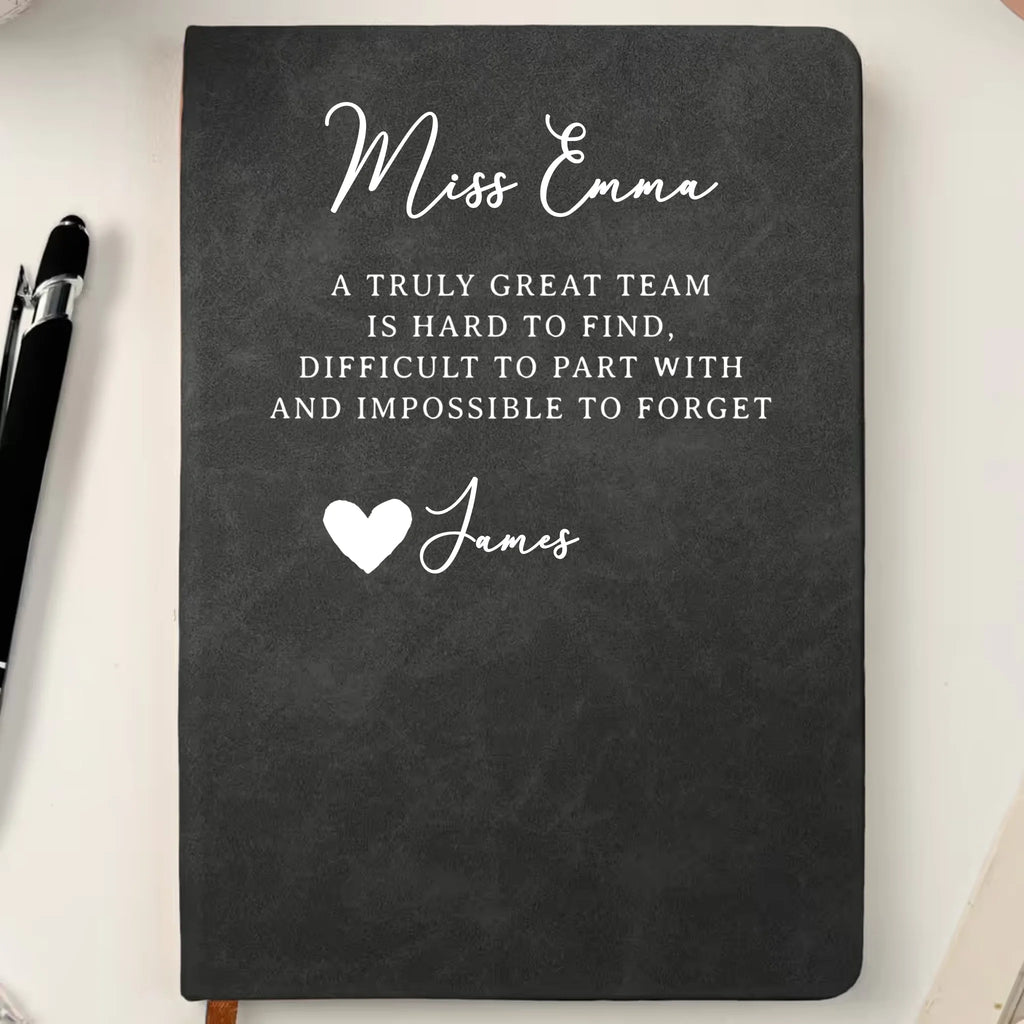 Miss Emma
A TRULY GREAT TEAM
IS HARD TO FIND,
DIFFICULT TO PART WITH
AND IMPOSSIBLE TO FORGET
James